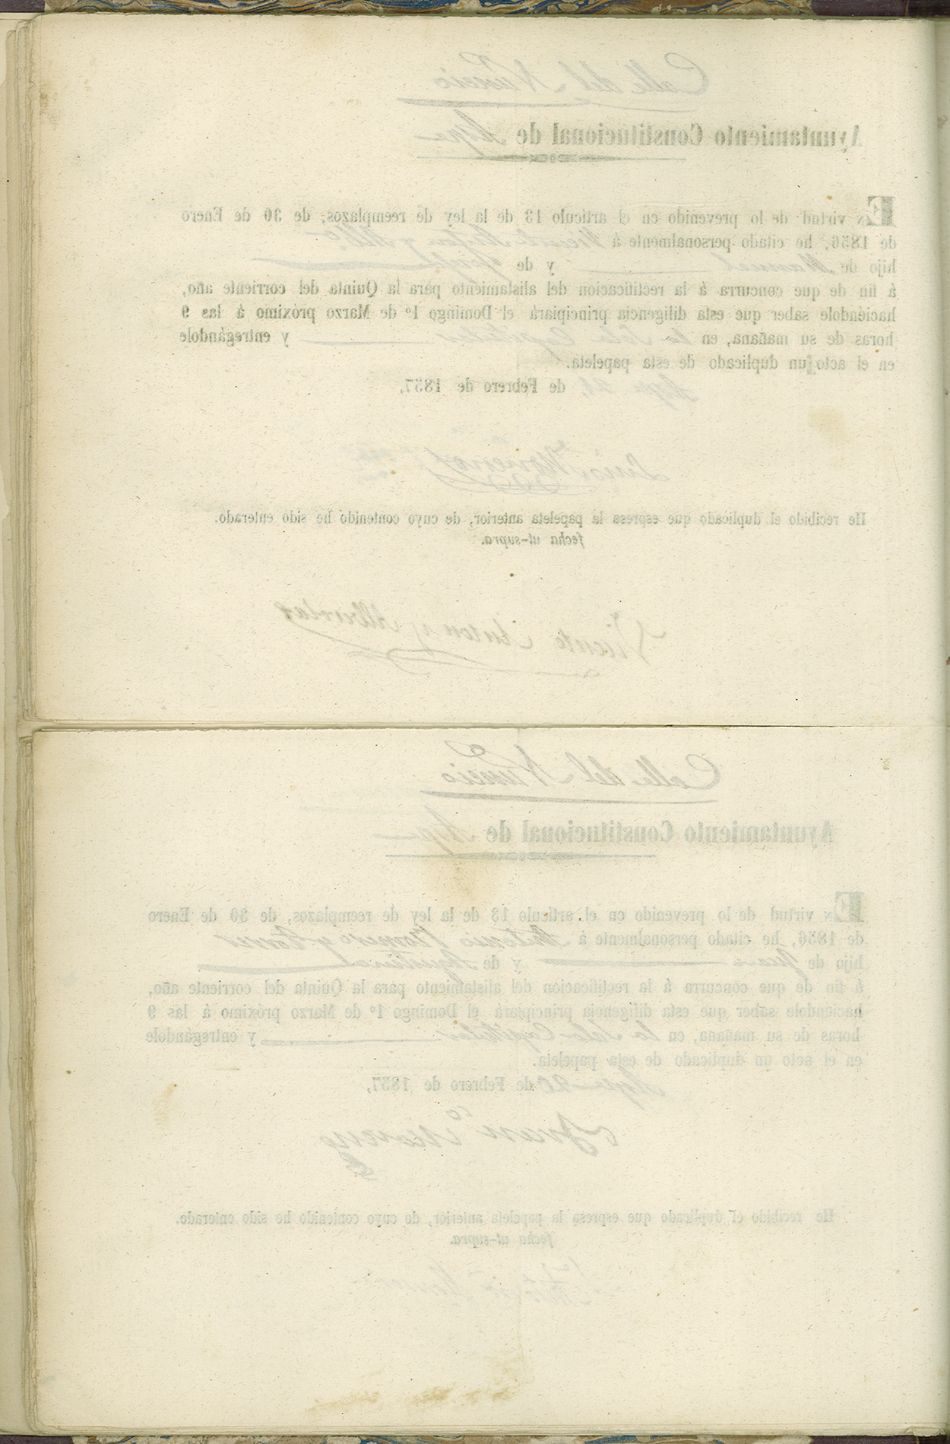 Calle del Nuncio
Ayuntamiento Constitucional de
EN virtud de lo prevenido en el artículo 13 de la ley de reemplazos; de 30 de Enero
de 1856, he citado personalmente á Vicente
hijo de Manuel y de Josefa
á fin de que concurra á la rectificacion del alistamiento para la Quinta del corriente año,
haciéndole saber que esta diligencia principiará el Domingo 1º de Marzo próximo á las 9
horas de su mañana, en la Sala Capitular y entregándole
en el acto un duplicado de esta papeleta.
de Febrero de 1857.
Moreno
He recibido el duplicado que espresa la papeleta anterior, de cuyo contenido he sido enterado.
fecha ut-supra.
Vicente Anton y
Calle del Nuncio
Ayuntamiento Constitucional de
EN virtud de lo prevenido en el artículo 13 de la ley de reemplazos, de 30 de Enero
de 1856, he citado personalmente á Antonio Romero y
hijo de y de
á fin de que concurra á la rectificacion del alistamiento para la Quinta del corriente año,
haciéndole saber que esta diligencia principiará el Domingo 1º de Marzo próximo á las 9
horas de su mañana, en la Sala Capitular y entregándole
en el acto un duplicado de esta papeleta.
de Febrero de 1857.
Juan Moreno
He recibido el duplicado que espresa la papeleta anterior, de cuyo contenido he sido enterado.
fecha ut-supra.